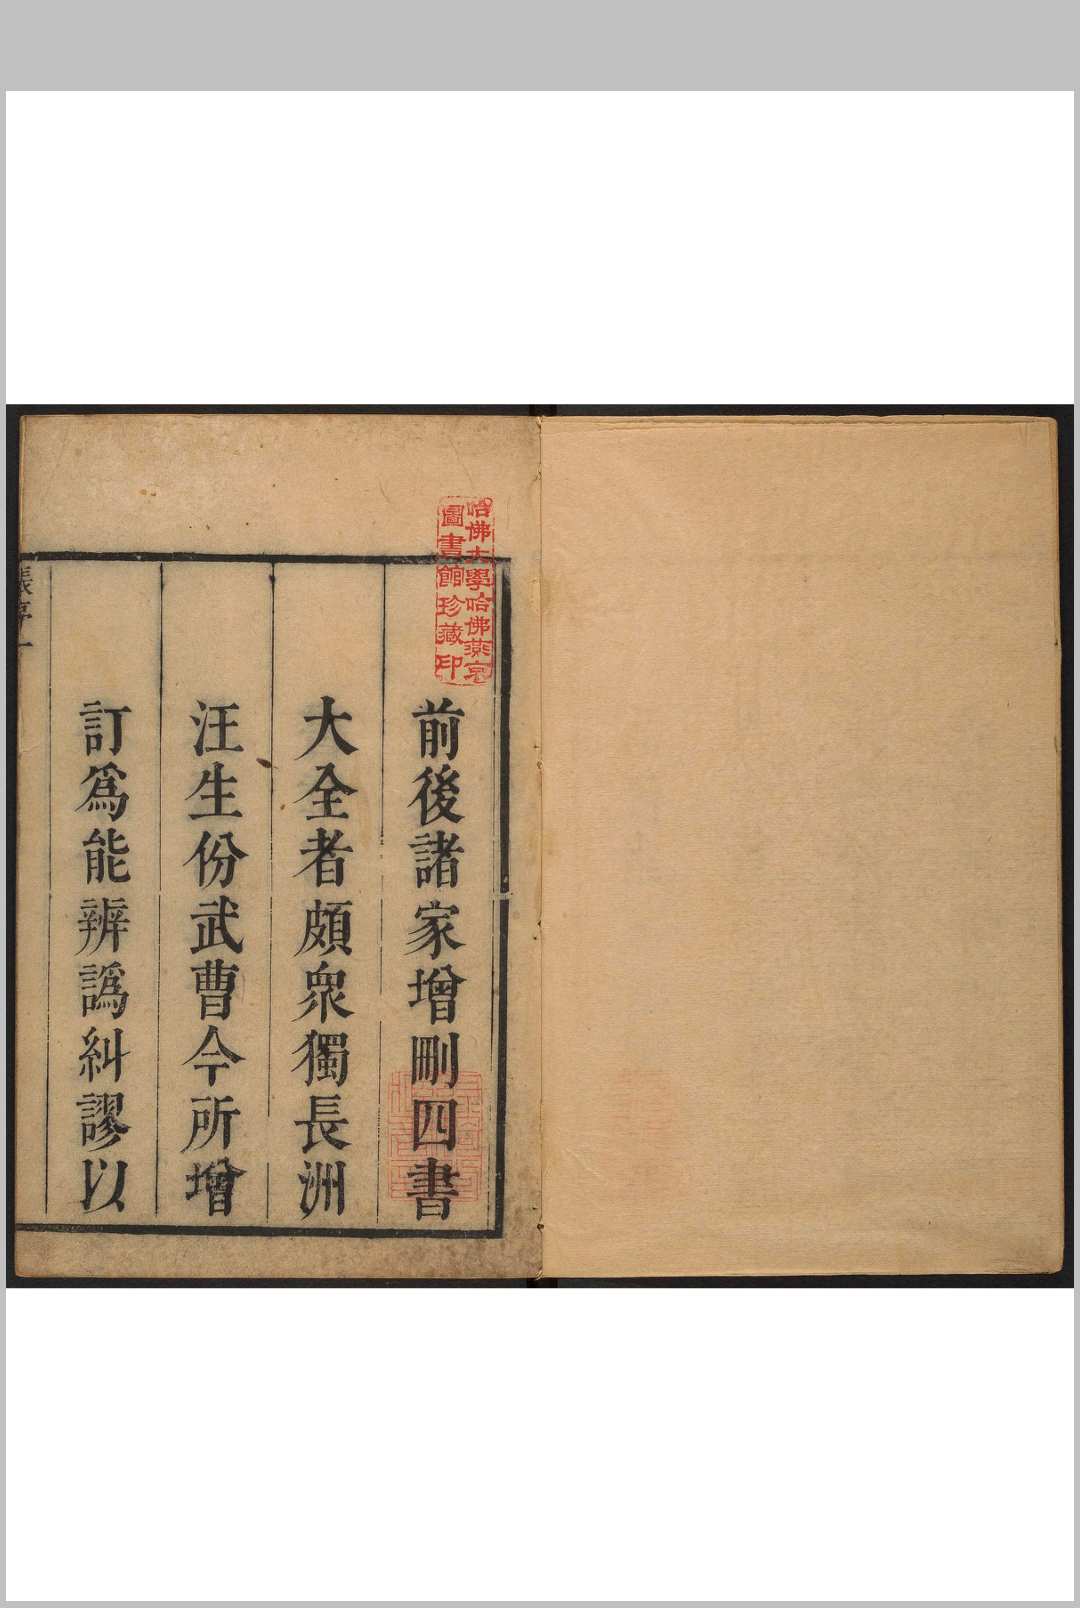 哈佛大學哈佛燕京
圖書館珍藏印
前後諸家增刪四書
大全者頗衆獨長洲
汪生份武曹今所增
訂爲能辨譌糾謬以